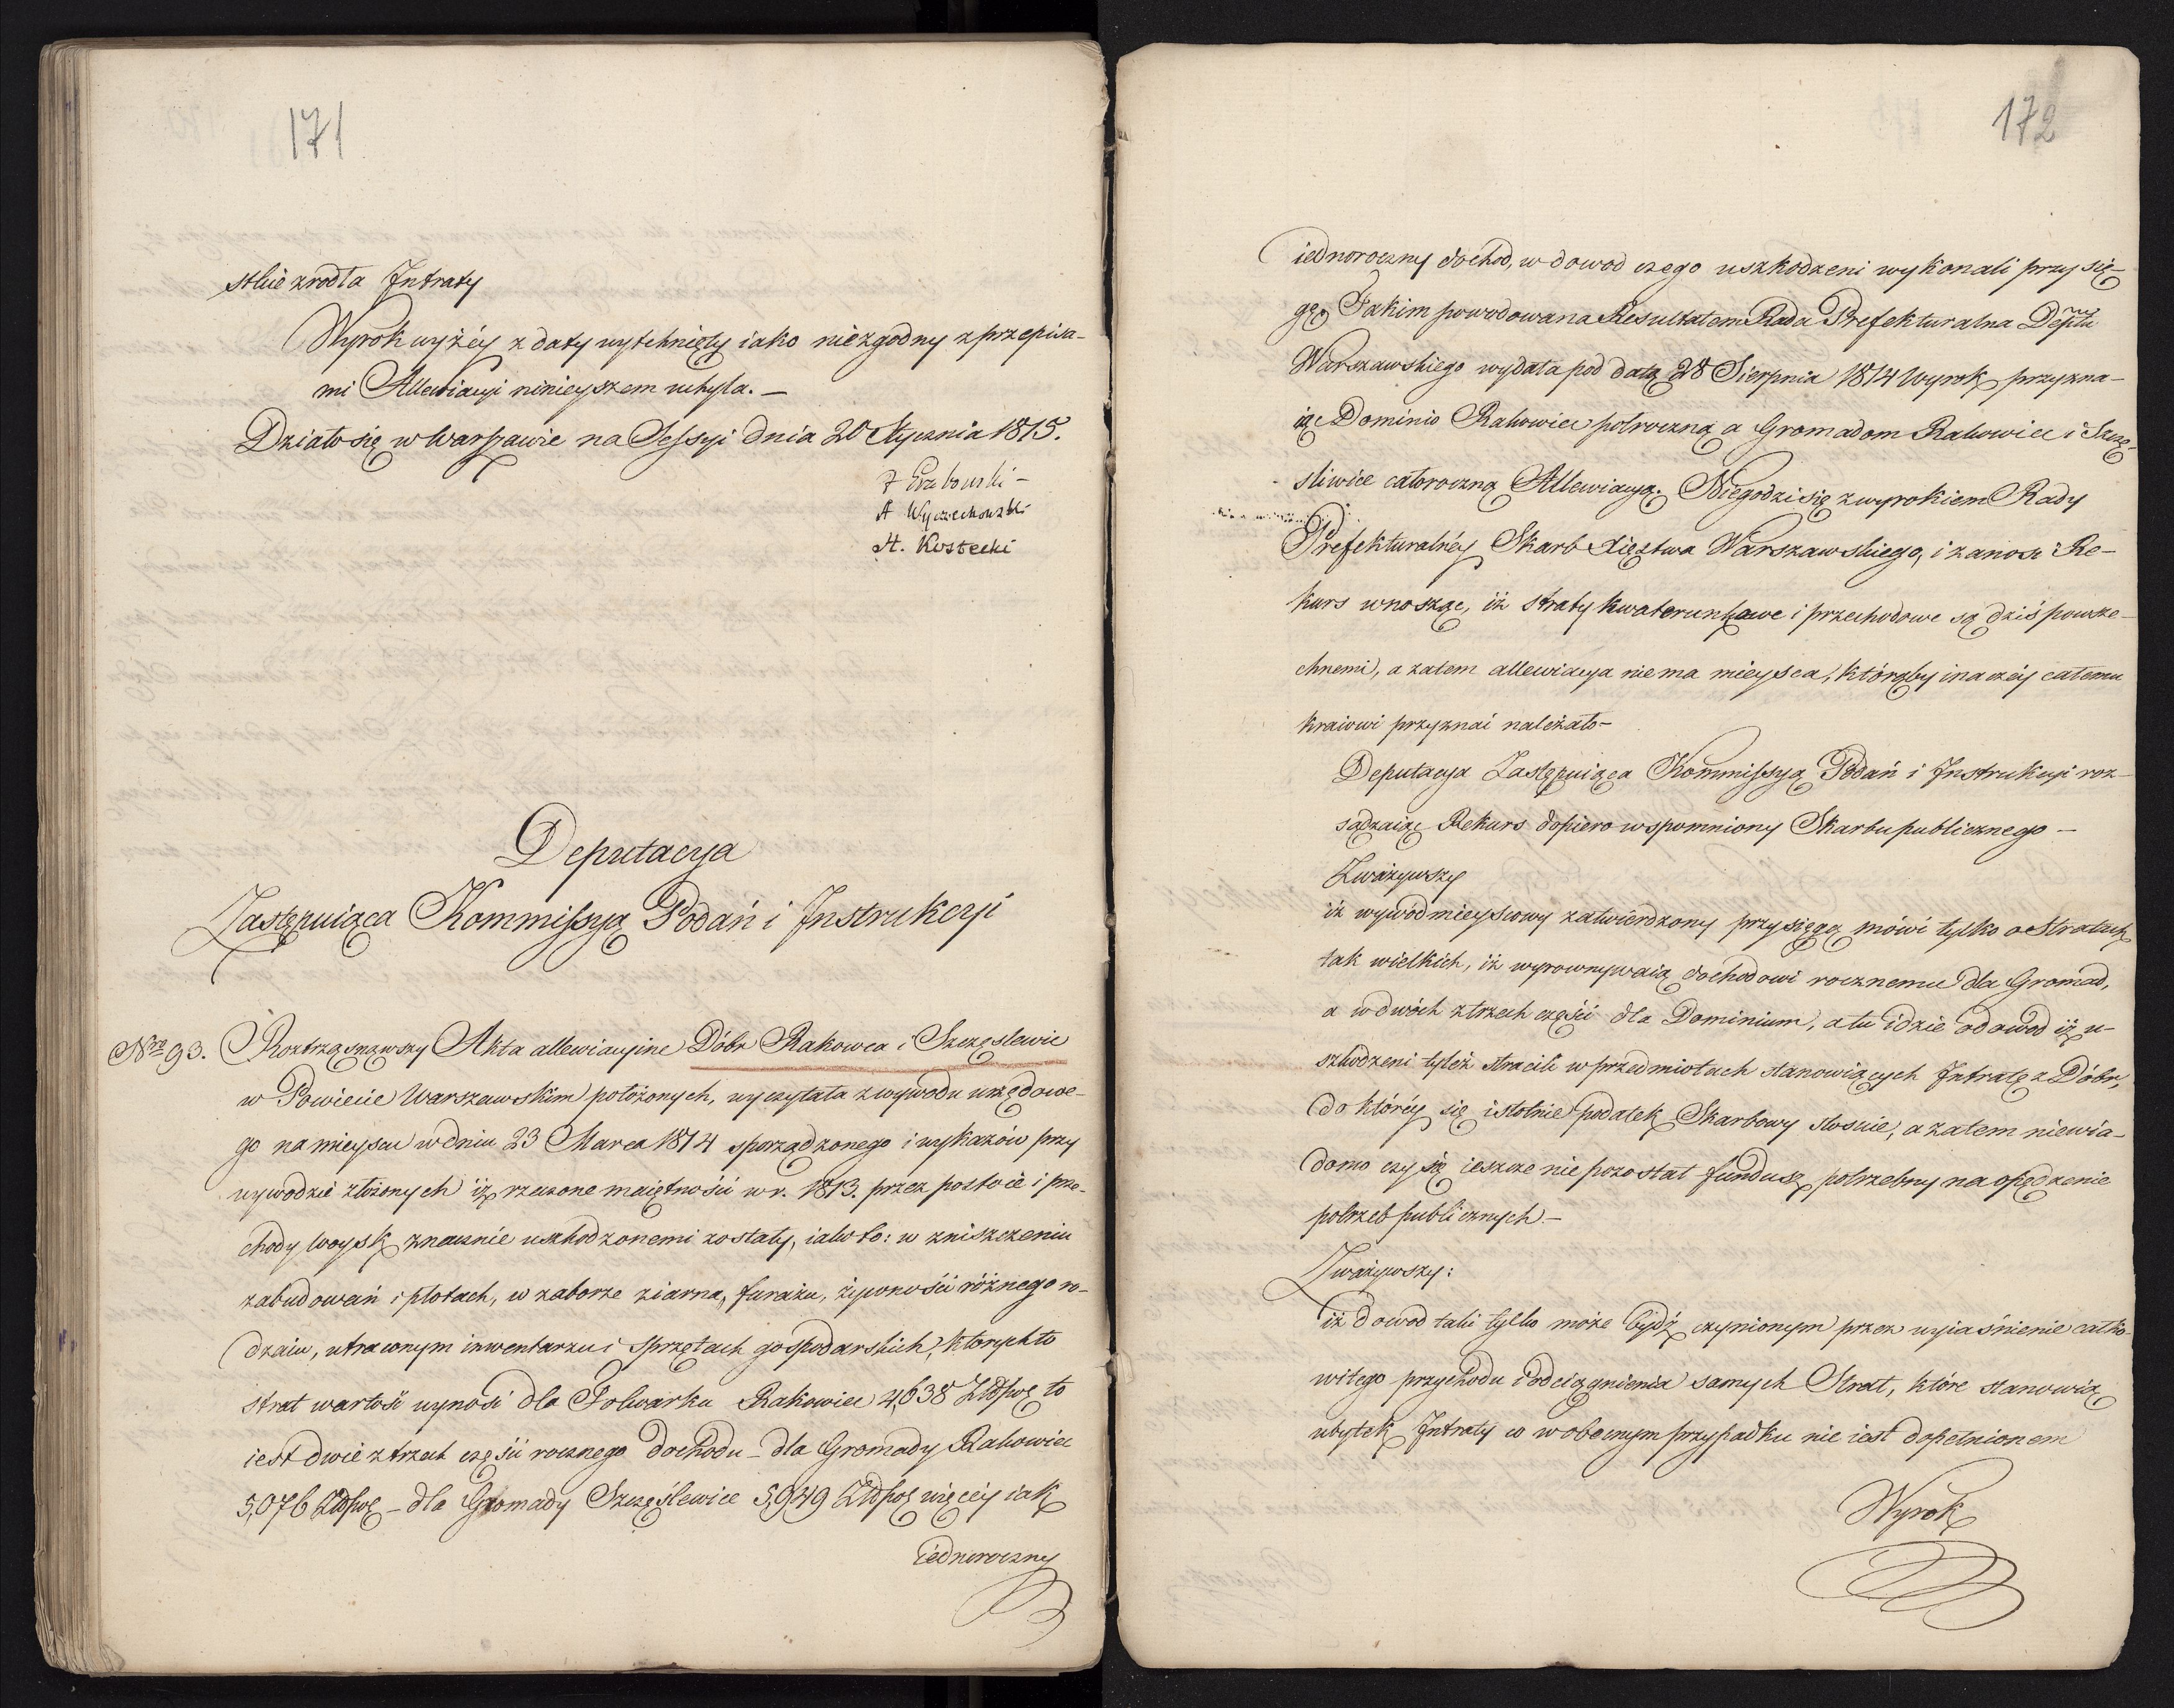 171
stkie zrodła Intraty
Wyrok wyżéy z daty wytchnięty iako niezgodny z przepisa-
mi Allewiacyi ninieyszem uchyla. —
Działo się w Warszawie na Sessyi dnia 20 Stycznia 1815.
A Wyczechowski
H. Kostecki
Deputacya
Zastępuiąca Kommissyą Podań i Instrukcyi
Nro 93. Roztrząsnąwszy Akta allewiacyine Dóbr Rakowca i Szczęslewic
w Powiecie Warszawskim położonych, wyczytała z wywodu urzędowe-
go na mieyscu w dniu 23 Marca 1814 sporządzonego i wykazów przy
wywodzie złożonych iż rzeczone maiętności w r. 1813. przez postoie i prze-
chody woysk znacznie uszkodzonemi zostały, iako to: w zniszczeniu
zabudowań i płotach, w zaborze ziarna, furażu, żywności różnego ro-
dzaiu, utraconym inwentarzu i sprzętach gospodarskich, których to
strat wartość wynosi dla Folwarku Rakowiec 4,638 Złłpol to
iest dwie z trzech części rocznego dochodu – dla Gromady Rakowiec
5,076 Złłpol – dla Gromady Szczęślewice 5,949 Złłpol więcéy iak
iednoroczny
172
iednoroczny dochod, w dowod czego uszkodzeni wykonali przysię-
gę. Takim powodowana Resultatem Rada Prefekturalna Deptu
Warszawskiego wydała pod datą 28 Sierpnia 1814 Wyrok przyzna-
iąc Dominio Rakowiec połroczną a Gromadom Rakowiec i Szczę-
śliwice całoroczną Allewiacyą. Niegodzi się z wyrokiem Rady
Prefekturalnéy Skarb Xięztwa Warszawskiego, i zanosi Re-
kurs wnosząc, iż straty kwaterunkowe i przechodowe są dziś powsze-
chnemi, a zatem allewiacya nie ma mieysca, którąby inaczéy całemu
kraiowi przyznać należało –
Deputacya Zastępuiąca Kommissyą Podań i Instrukcyi roz-
sądzaiąc Rekurs dopiero wspomniony Skarbu publicznego —
Zważywszy
iż wywód mieyscowy zatwierdzony przysięgą mówi tylko o stratach
tak wielkich, iż wyrownywaią dochodowi rocznemu dla Gromad,
a w dwóch z trzech części dla Dominium, a tu idzie o dowod iż u-
szkodzeni tyleż stracili w przedmiotach stanowiących Intratę z Dóbr,
do któréy się istotnie podatek Skarbowy stosuie, a zatem niewia-
domo czy się ieszcze nie pozostał fundusz potrzebny na opędzenie
potrzeb publicznych. –
Zważywszy:
iż dowod taki tylko może bydź czynionym przez wyiaśnienie całko-
witego przychodu i odciągnienia samych Strat, które stanowią
ubytek Intraty co w obecnym przypadku nie iest dopełnionem
Wyrok